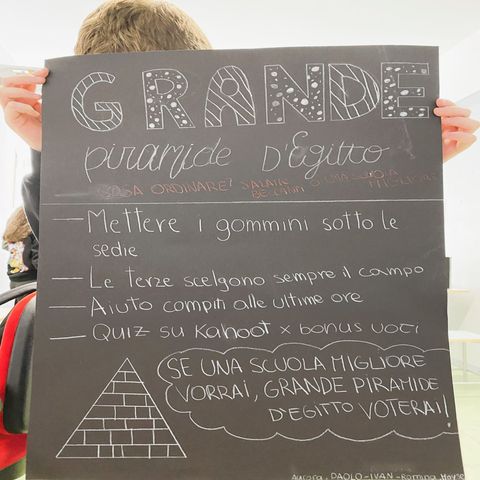 GRANDE
piramide D'Egitto
COSA ORDINARE?
O UNA SCUOLA
MIGLIORE
— Mettere i gommini sotto le
sedie
— Le terze scelgono sempre il campo
— Aiuto compiti alle ultime ore
— Quiz su Kahoot x bonus voti
SE UNA SCUOLA MIGLIORE
VORRAI, GRANDE PIRAMIDE
D'EGITTO VOTERAI!
Aurora, PAOLO-IVAN-Romina